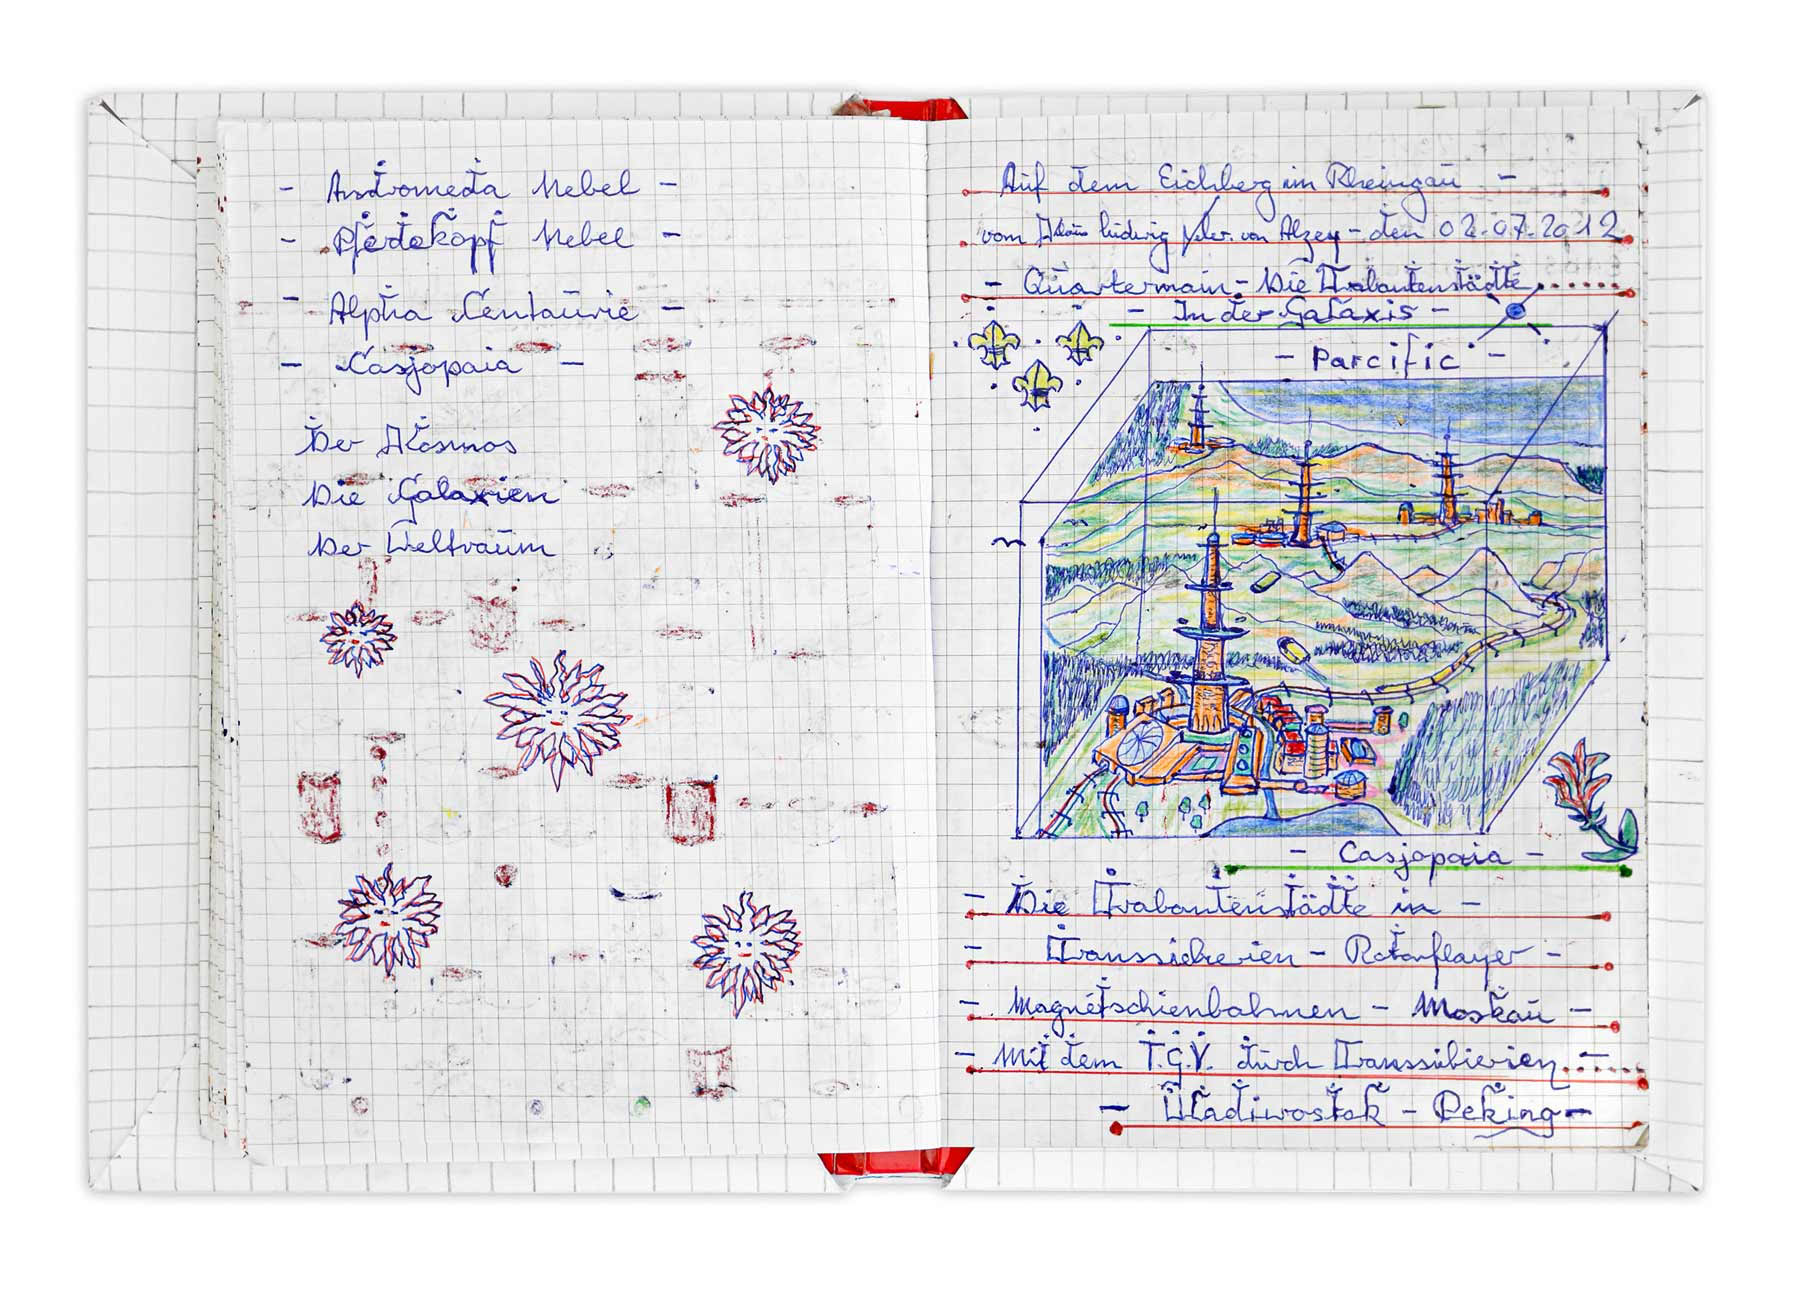 - Andromeda Nebel -
- Pferdekopf Nebel -
- Alpha Centaurie -
- Casjopaia -
Der Kosmos
Die Galaxien
Der Weltraum
Auf dem Eichberg im Rheingau -
vom Klaus Ludwig von Alzey - den 02.07.2012
- Quartermain - Die Trabantenstädte.......
- In der Galaxis -
- Parcific -
- Casjopaia -
- Die Trabantenstädte in -
- Transsibierien - Rotorflayer -
- Magnetschienbahnen - Moskau -
- Mit dem T.G.V. durch Transsibierien.......
- Wladiwostok - Peking -